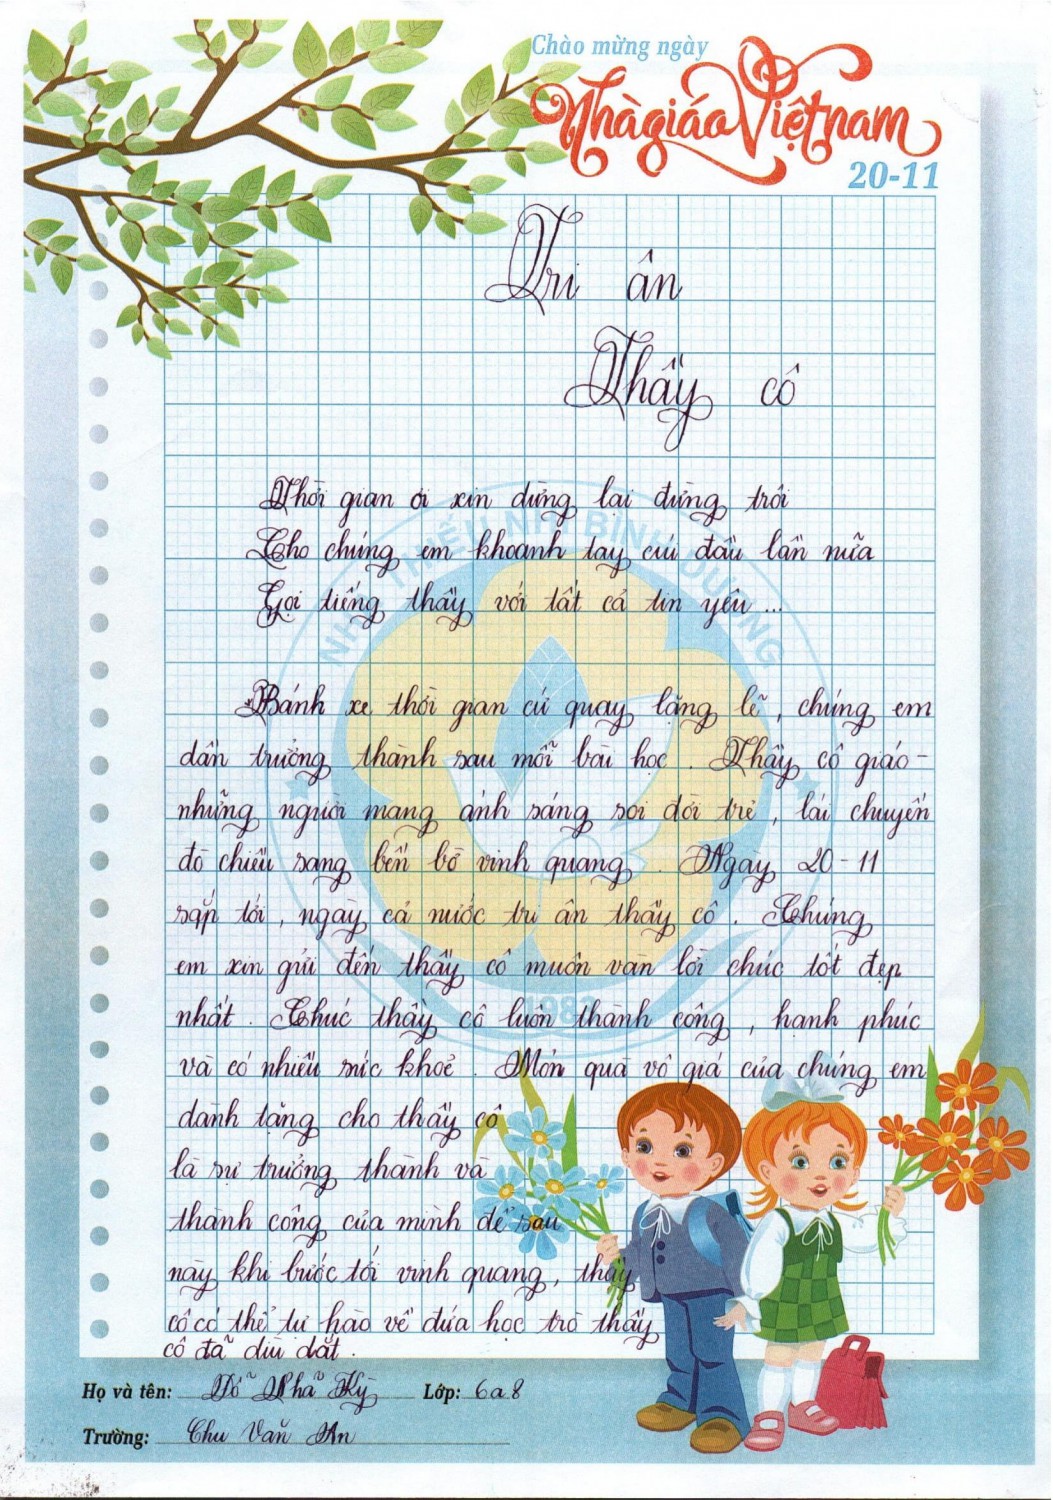 Chào mừng ngày
Nhà giáo Việt nam
20-11
Tri ân
Thầy cô
Thời gian ơi xin dừng lại đừng trôi
Cho chúng em khoanh tay cúi đầu lần nữa
Gọi tiếng thầy với tất cả tin yêu ...
"Bánh xe thời gian cứ quay lặng lẽ, chúng em
dần trưởng thành sau mỗi bài học. Thầy cô giáo -
những người mang ánh sáng soi đời trẻ, lái chuyến
đò chiều sang bến bờ vinh quang. Ngày 20-11
sắp tới, ngày cả nước tri ân thầy cô. Chúng
em xin gửi đến thầy cô muôn vàn lời chúc tốt đẹp
nhất. Chúc thầy cô luôn thành công, hạnh phúc
và có nhiều sức khoẻ. Món quà vô giá của chúng em
dành tặng cho thầy cô
là sự trưởng thành và
thành công của mình để sau
này khi bước tới vinh quang, thầy
cô có thể tự hào về đứa học trò thầy
cô đã dìu dắt.
NHÀ THIẾU NHI BÌNH DƯƠNG
1983
Họ và tên: Đỗ Nhã Kỳ Lớp: 6a8
Trường: Chu Văn An